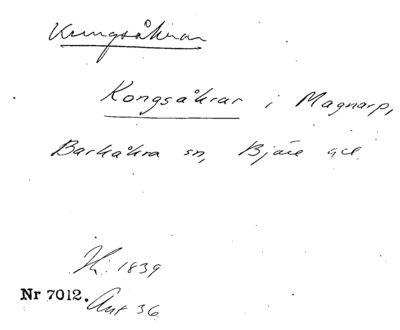 Kungsåkrar
Kongsåkrar i Magnarp,
Barkåkra sn, Bjäre
1839
Nr 7012.
36